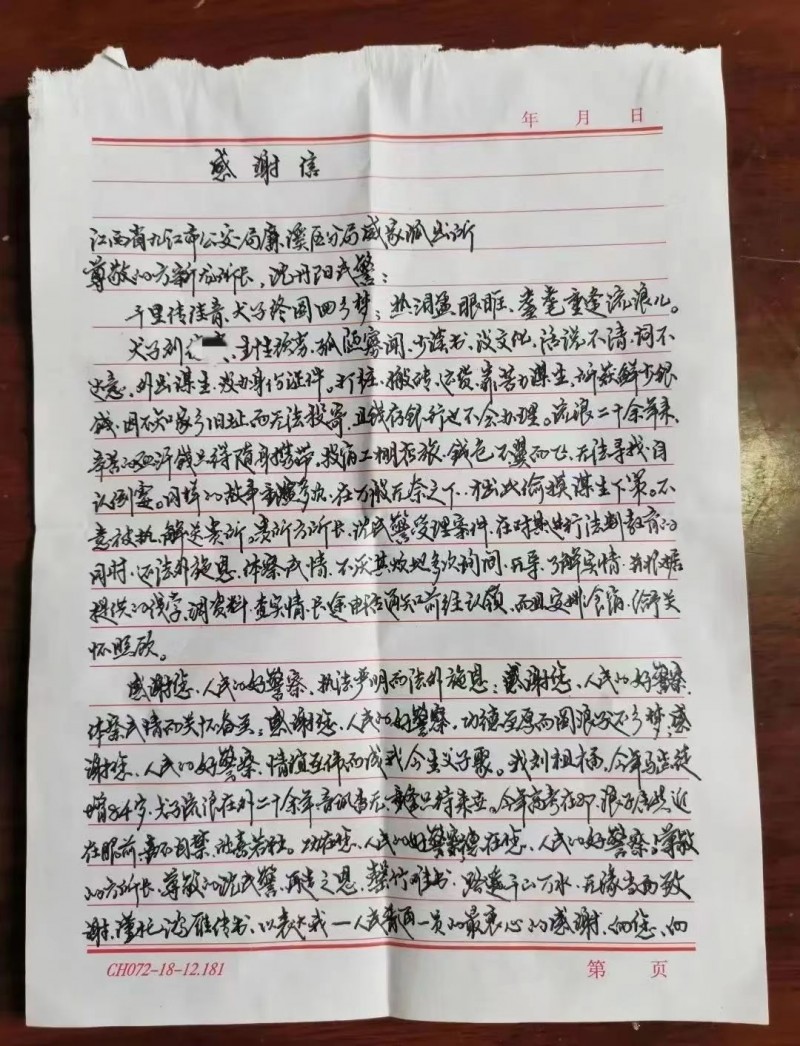 年 月 日
感谢信
江西省九江市公安局廉溪区分局威家派出所
尊敬的方新龙所长，沈丹阳民警：
千里传佳音、犬子终圆回乡梦；热泪盈眼眶、耄耋重逢流浪儿。
犬子刘 、生性顽劣、孤陋寡闻、少读书、没文化、话说不清、词不
达意、外出谋生、没办身份证件。打桩、搬砖、运货、靠苦力谋生、所获鲜少银
钱、因不知家乡旧址而无法投寄、且钱存银行也不会办理。流浪二十余年来、
辛苦的血汗钱只得随身携带、投宿工棚客旅、钱包不翼而飞、无法寻找、自
认倒霉。同样的故事重演多次、在万般无奈之下、才出此偷摸谋生下策。不
意被执、解关贵所。贵所方所长、沈民警受理案件、在对其进行法制教育的
同时、还法外施恩、体察民情、不厌其烦地多次询问、开导、了解实情、并根据
提供的线索、调资料、查实情、长途电话通知前经认领、而且安排食宿、给予关
怀照顾。
感谢您、人民的好警察、执法严明而法外施恩；感谢您、人民的好警察、
体察民情而关怀备至；感谢您、人民的好警察、功德至厚而圆浪子还乡梦；感
谢您、人民的好警察、情谊至伟而成我今生父子聚。我刘祖 、今年马齿徒
增84岁、犬子流浪在外二十余年音讯杳无、 。今年高考在即、浪子居然近
在眼前、 、 若狂。功在您、人民的好警察、德在您、人民的好警察！尊敬
的方所长、尊敬的沈民警、再造之恩、罄竹难书、路遥千山万水、无缘当面致
谢、谨托鸿雁传书、以表达我一人民 一员的最衷心的感谢、向您、向
CH072-18-12.181
第 页